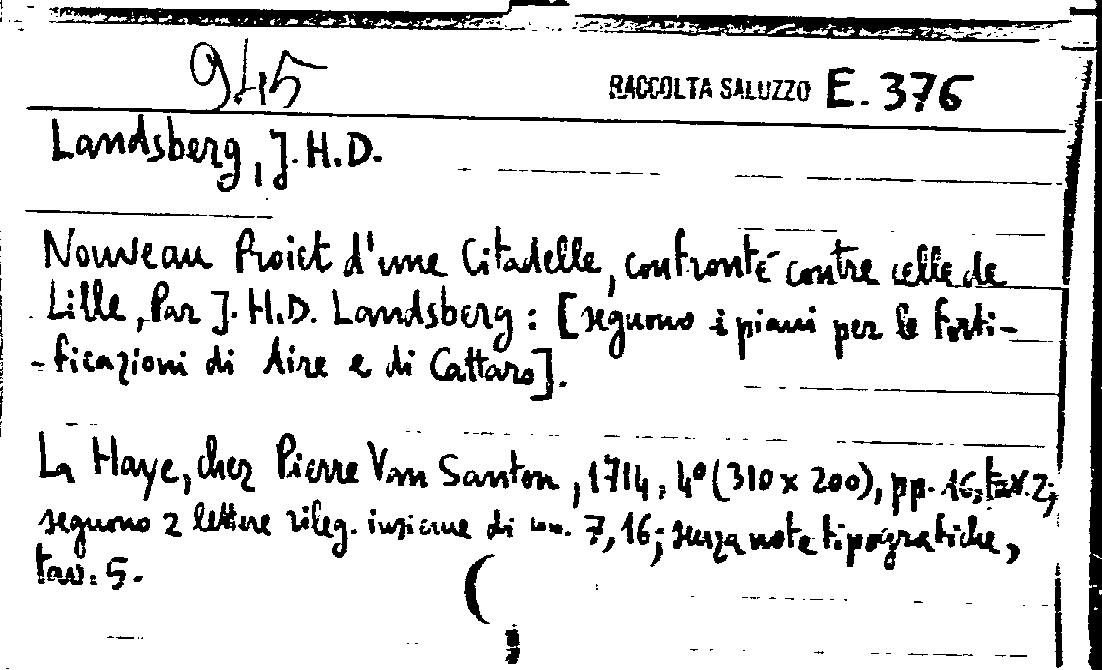 945
RACCOLTA SALUZZO E. 376
Landsberg, J. H. D.
Nouveau Proict d'une Citadelle, confronté contre celle de
Lille, Par J. H. D. Landsberg : [seguono i piani per le forti-
-ficazioni di Aire e di Cattaro].
La Haye, chez Pierre Van Santon, 1714, 4º (310 x 200), pp. 16, tav. 2;
seguono 2 lettere rileg. insieme di 7, 16; senza note tipografiche,
tav. 5.